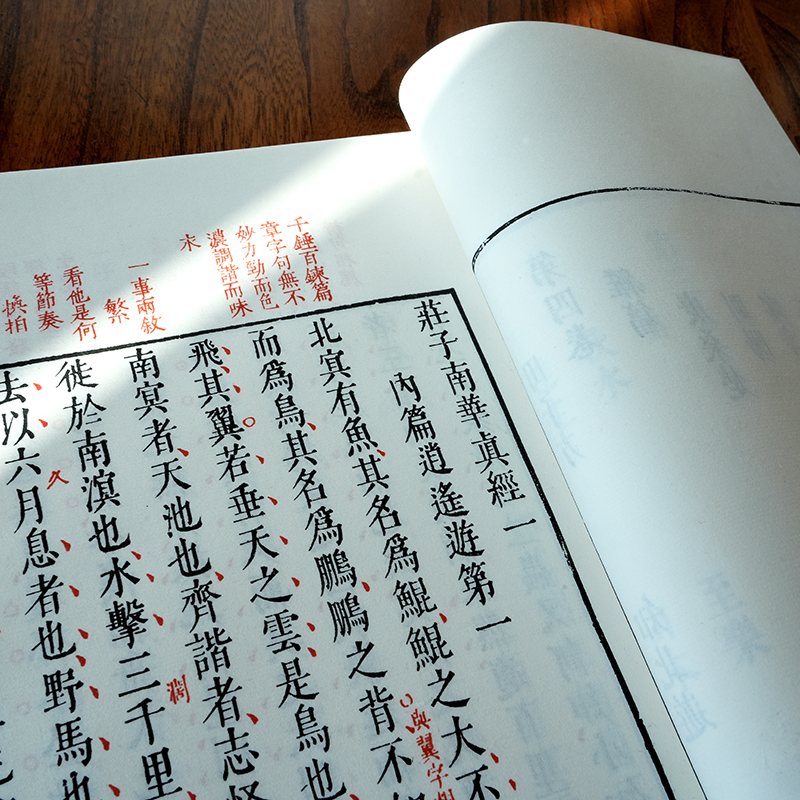 千錘百鍊篇
章字句無不
妙力勁而色
濃調諧而味
一事兩敘
繁
看他是何
等節奏
莊子南華眞經一
內篇逍遙遊第一
北冥有魚其名爲鯤鯤之大不
而爲鳥其名爲鵬鵬之背不
與翼字
飛其翼若垂天之雲是鳥也
南冥者天池也齊諧者志怪
徙於南溟也水擊三千里
去以六月息者也野馬也